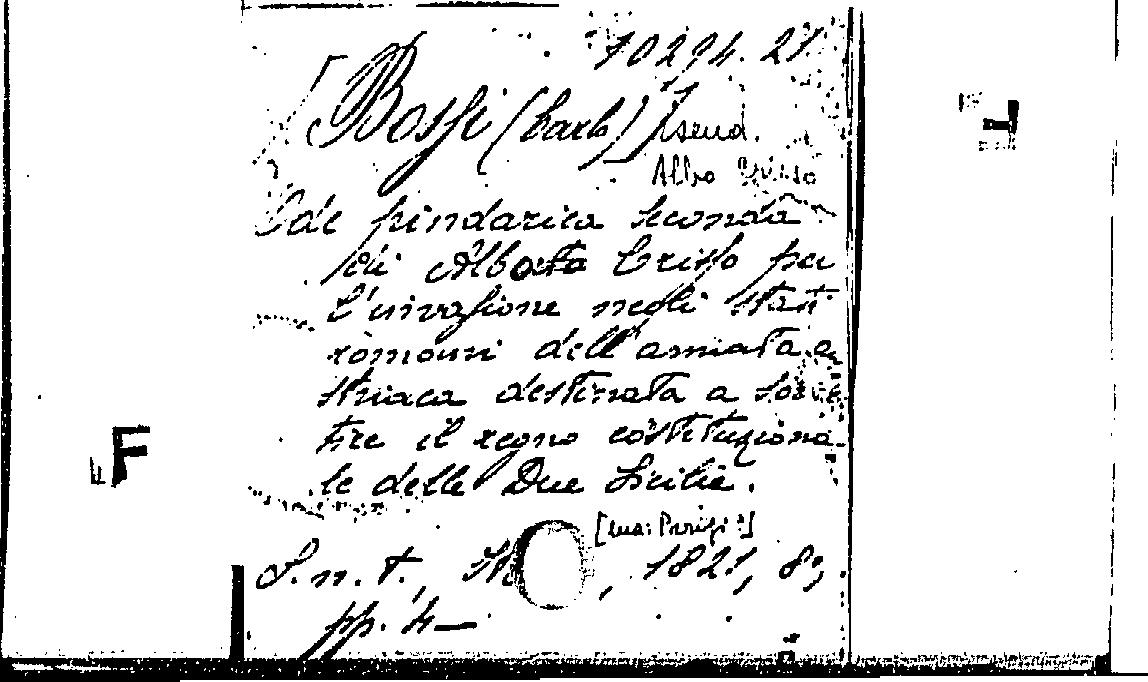 10294.21
[Bossi (Carlo)] Pseud.
Albo Crisso
Ode pindarica seconda
di Alberto Crisso per
l'invasione negli stati
romani dell'armata au
striaca destinata a sovver
tire il regno costituziona-
le delle Due Sicilie.
[ma: Parigi?]
S.n.t., , 1821, 8°,
pp. 4—
F